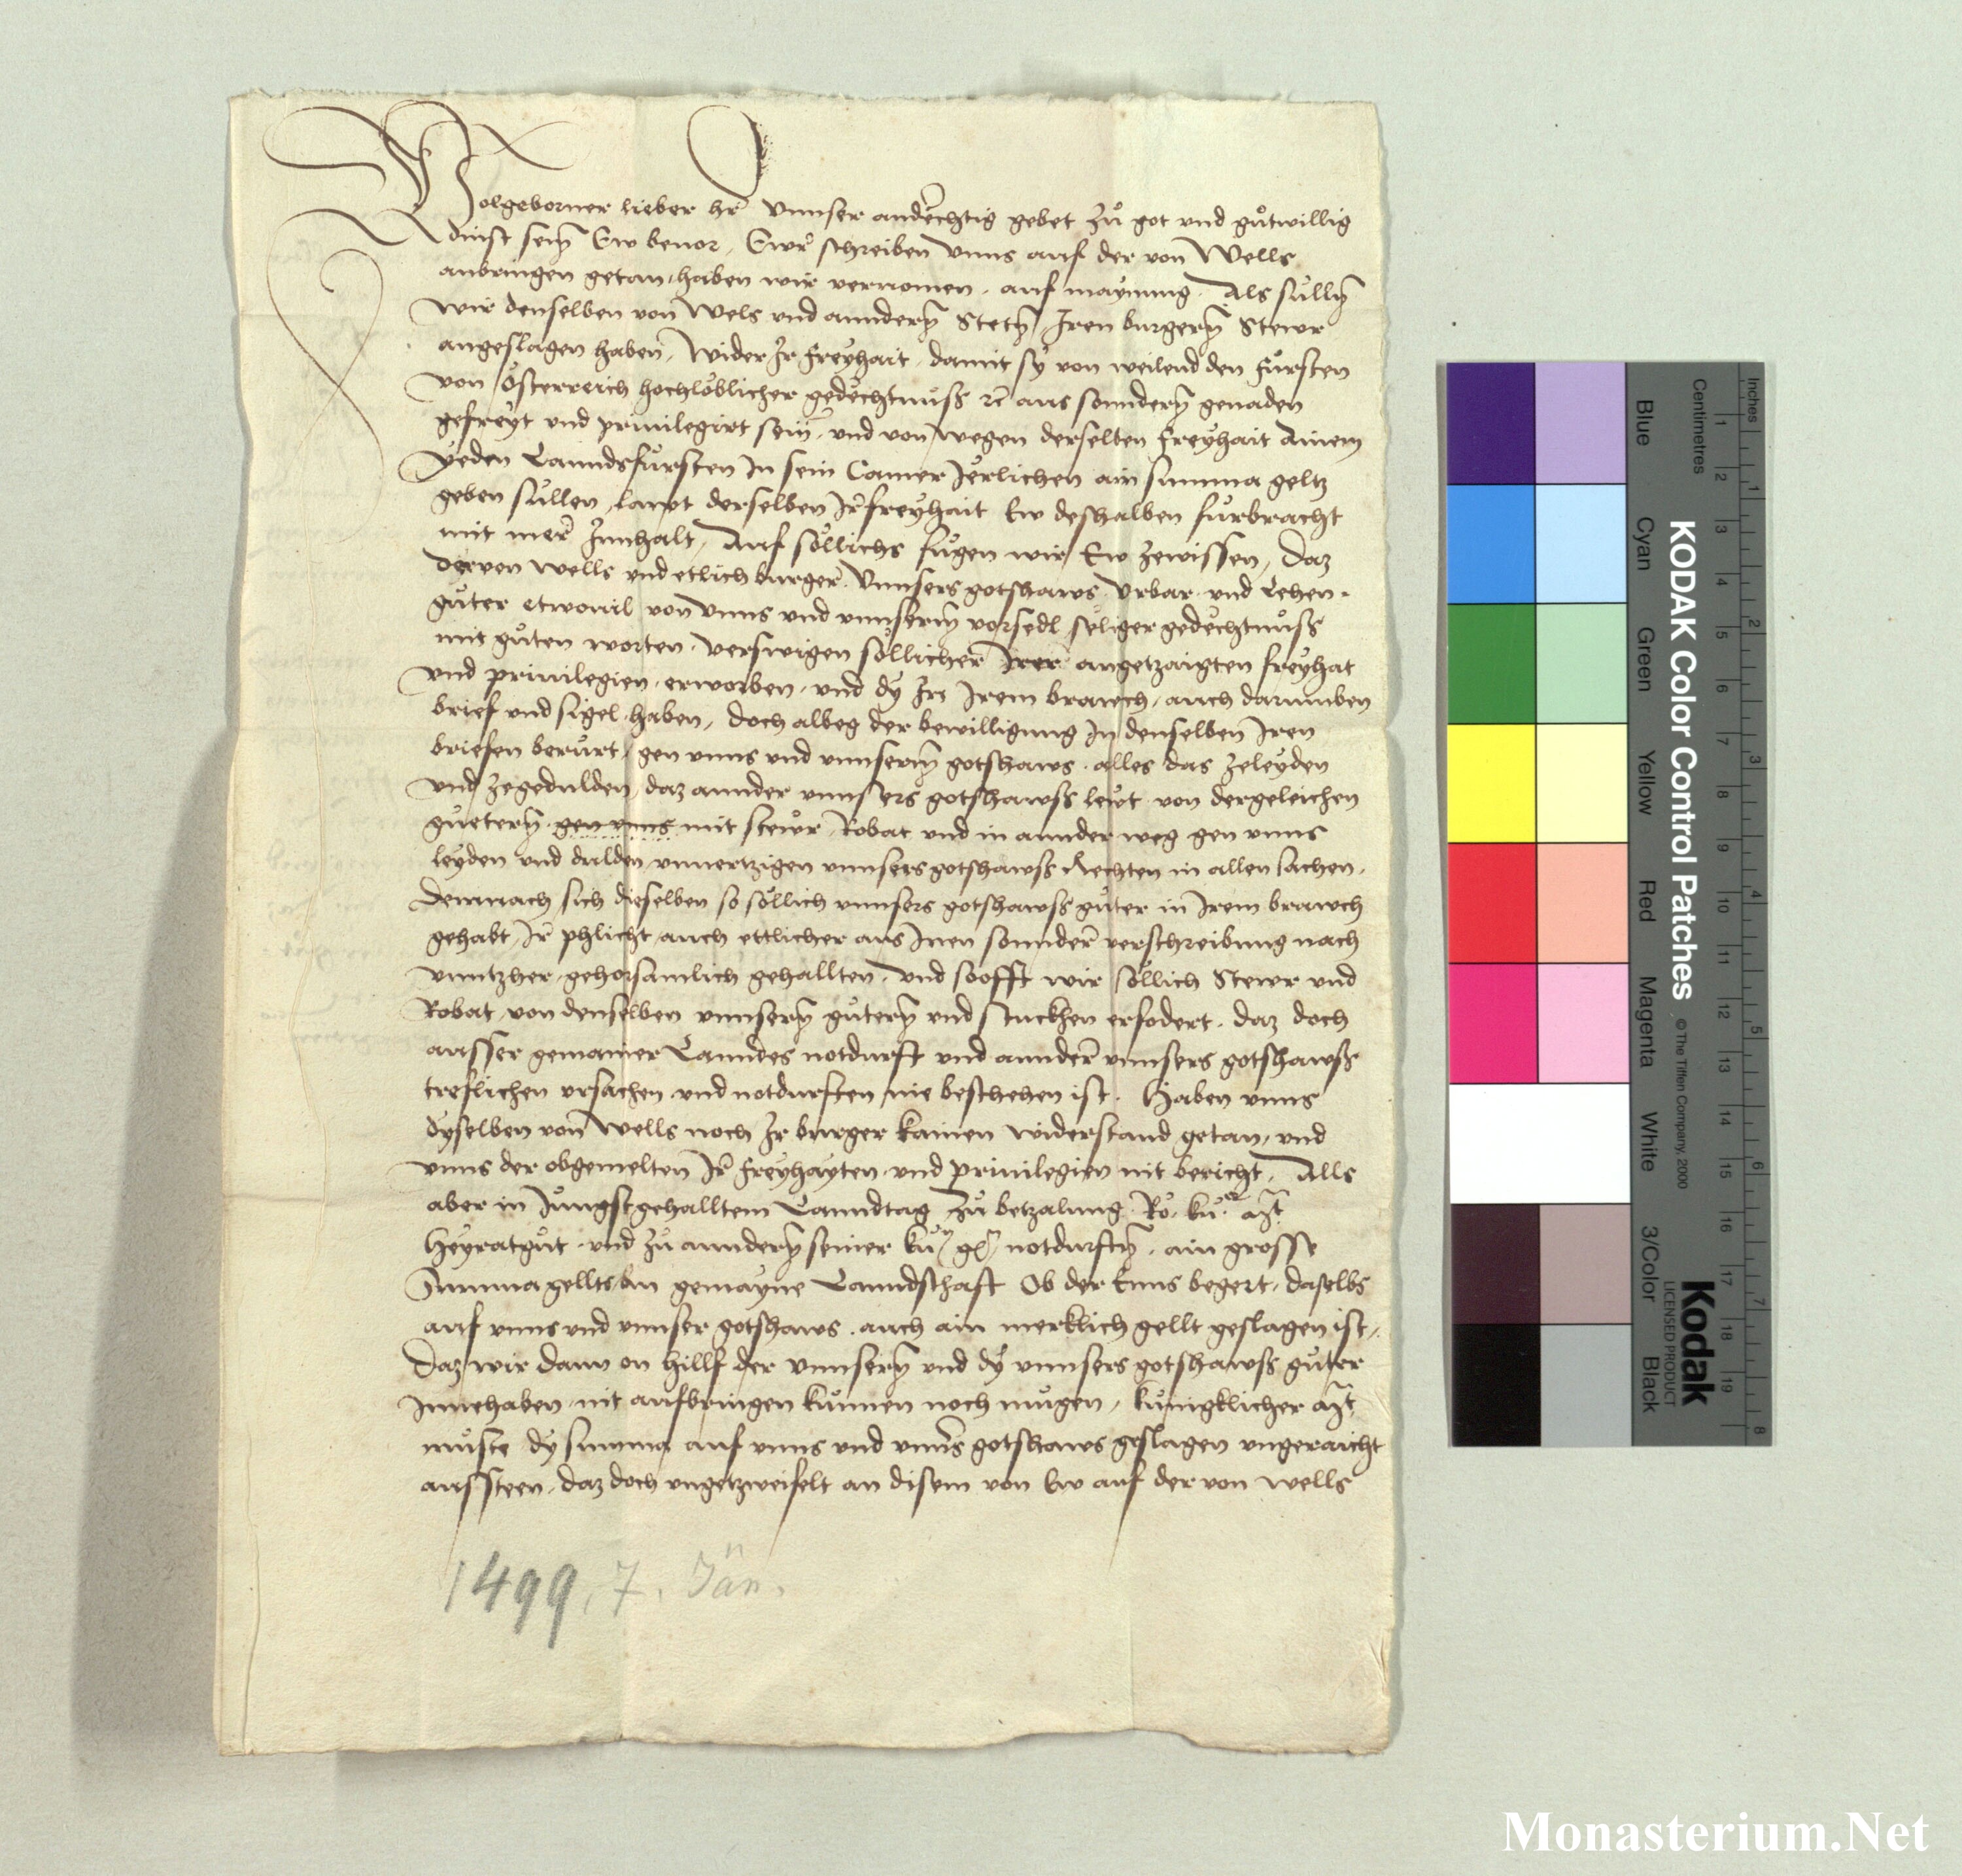 Wolgeborner lieber hr̄ Vnnser andëchtig gebet zů got vnd gůtwillig
dinst sein Ew beuor. Ewr̄ schreiben vnns auf der von Wells
anbringen getan, haben wir vernomen. auf maynung. Als sullen
wir denselben von Wels vnd anndern Stetn Iren burgern Stewr
angeslagen haben, wider Ir freyhait, damit sy von weilend den fürsten
von österreich hochlöblicher gedëchtnuss rc̄ aus sonndern genaden
gefreyt vnd priuilegirt sein, vnd von wegen derselben freyhait Ainem
yeden Lanndsfürsten In sein Camer Iërlichen ain summa geltz
geben süllen, lawt derselben Ir freyhait Ew deshalben fürbracht
mit mer̄ Innhalt, Auf söllichs fügen wir Ew zewissen, Daz
der von wells vnd etlich burger. Vnnsers gotshaws Vrbar. vnd Lehen.
güter etwouil von vnns vnd vnnsern vorfodl seliger gedëchtnuss
mit güten worten. verswigen söllicher Irer angetzaigten freyhat
vnd priuilegien. erworben. vnd dy Irs Irem brawch, auch darumben
brief vnd sigel haben, doch albeg der bewilligung In denselben Iren
briefen berürt, gen vnns vnd vnnserm gotshaws. alles das zeleyden
vnd zegedulden, daz annder vnnsers gotshawss lewt von dergeleichen
güetern gen vnns mit stewr, Robat vnd in annder weg gen vnns
leyden vnd dulden, vnuertzigen vnnsers gotshawss Rechten in allen sachen.
Demnach sich dieselben so söllich vnnsers gotshawss güter in Irem brawch
gehabt, Ir̄ phlicht, auch ettlicher aus Inen sonnder̄ verschreibung nach
vnntzher, gehorsamlich gehallten, vnd soofft wir söllich Stewr vnd
Robat, von denselben vnnsern gütern vnd stuckhen erfodert, daz doch
ausser gemainer Lanndes notdurft vnd annder̄ vnnsers gotshawss
treflichen vrsachen vnd notdurften nie beschehen ist. Haben vnns
dyselben von Wells noch Ir burger kainen widerstand getan, vnd
vnns der obgemelten Ir̄ freyhayten vnd priuilegien nit bericht, Alls
aber in Jüngstgehalltem Lanndtag zů betzalung Rö. kü. Mt
Heyratgůt vnd zů anndern seiner kün gn notdurftn, ain grosse
Summa gellts an gemayne Lanndschaft Ob der Enns begert, daselbs
auf vnns vnd vnnser gotshaws, auch ain merklich gellt geslagen ist,
Daz wir dann on hillf der vnnsern vnd dy vnnsers gotshawss güter
Innehaben, nit aufbringen künnen noch mügen, künigklicher Mt
müste dy summa auf vnns vnd vnns̄ gotshaws geslagen vngeraicht
aussteen, daz doch vngetzweifelt an disem von Ew auf der von wells
1499, 7. Jän.
KODAK Color Control Patches
© The Tiffen Company, 2000
Kodak
LICENSED PRODUCT
Inches
Centimetres
Blue
Cyan
Green
Yellow
Red
Magenta
White
3/Color
Black
1 2 3 4 5 6 7 8
1 2 3 4 5 6 7 8 9 10 11 12 13 14 15 16 17 18 19
Monasterium.Net